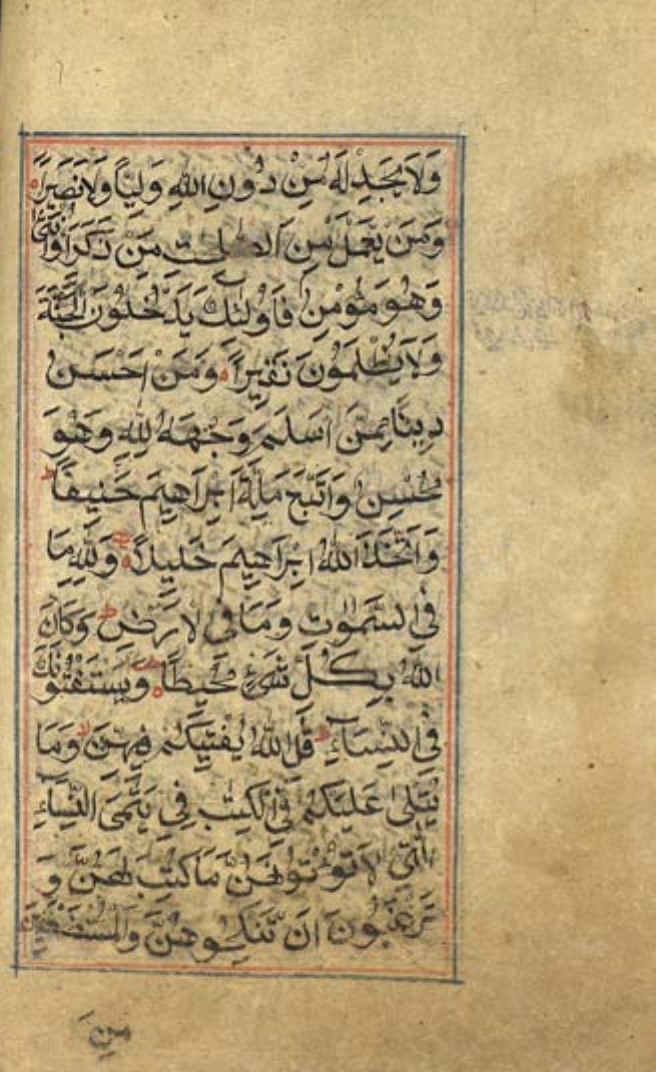 وَلَا يَجِدْ لَهُ مِنْ دُونِ اللهِ وَلِيًّا وَلَا نَصِيرًا
وَمَنْ يَعْمَلْ مِنَ الصّٰلِحٰتِ مِنْ ذَكَرٍ اَوْ اُنْثٰى
وَهُوَ مُؤْمِنٌ فَاُولٰئِكَ يَدْخُلُونَ الْجَنَّةَ
وَلَا يُظْلَمُونَ نَقِيرًا وَمَنْ اَحْسَنُ
دِينًا مِمَّنْ اَسْلَمَ وَجْهَهُ لِلّٰهِ وَهُوَ
مُحْسِنٌ وَاتَّبَعَ مِلَّةَ اِبْرَاهِيمَ حَنِيفًا ط
وَاتَّخَذَ اللهُ اِبْرَاهِيمَ خَلِيلًا وَلِلّٰهِ مَا
فِي السَّمٰوٰتِ وَمَا فِي الْاَرْضِ ط وَكَانَ
اللهُ بِكُلِّ شَيْءٍ مُحِيطًا وَيَسْتَفْتُونَكَ
فِي النِّسَاءِ ط قُلِ اللهُ يُفْتِيكُمْ فِيهِنَّ وَمَا
يُتْلٰى عَلَيْكُمْ فِي الْكِتٰبِ فِي يَتٰمَى النِّسَاءِ
الّٰتِي لَا تُؤْتُونَهُنَّ مَا كُتِبَ لَهُنَّ وَ
تَرْغَبُونَ اَنْ تَنْكِحُوهُنَّ وَالْمُسْتَضْعَفِينَ
مِنَ